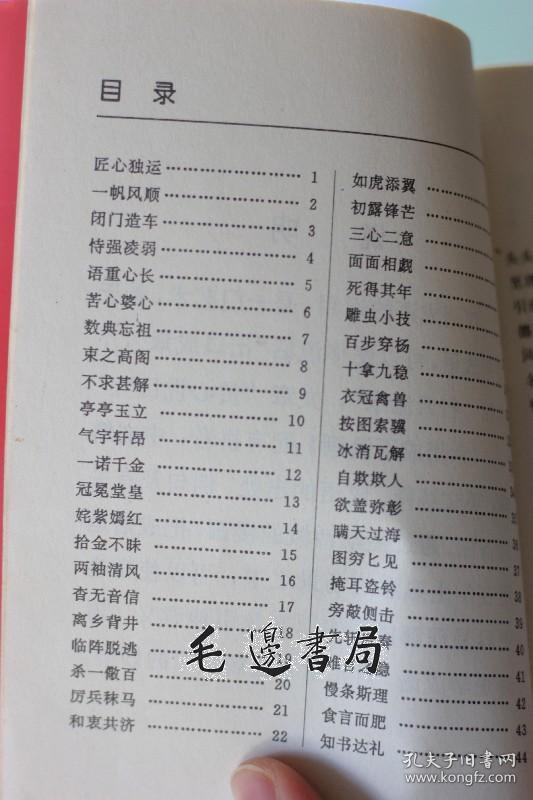 目录
匠心独运……………………1
一帆风顺……………………2
闭门造车……………………3
恃强凌弱……………………4
语重心长……………………5
苦心婆心……………………6
数典忘祖……………………7
束之高阁……………………8
不求甚解……………………9
亭亭玉立……………………10
气宇轩昂……………………11
一诺千金……………………12
冠冕堂皇……………………13
姹紫嫣红……………………14
拾金不昧……………………15
两袖清风……………………16
杳无音信……………………17
离乡背井……………………18
临阵脱逃……………………19
杀一儆百……………………20
厉兵秣马……………………21
和衷共济……………………22
如虎添翼……………………
初露锋芒……………………
三心二意……………………
面面相觑……………………
死得其年……………………
雕虫小技……………………
百步穿杨……………………
十拿九稳……………………
衣冠禽兽……………………
按图索骥……………………
冰消瓦解……………………
自欺欺人……………………
欲盖弥彰……………………35
瞒天过海……………………36
图穷匕见……………………37
掩耳盗铃……………………38
旁敲侧击……………………39
……………………40
隐……………………41
慢条斯理……………………
食言而肥……………………43
知书达礼……………………44
毛邊書局
孔夫子旧书网
www.kongfz.com